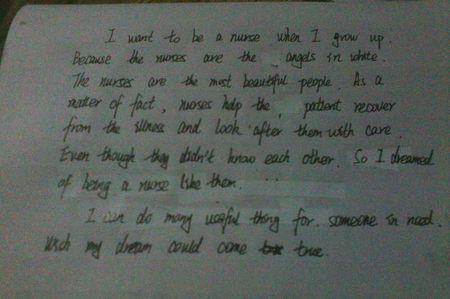 I want to be a nurse when I grow up.
Because the nurses are the angels in white.
The nurses are the most beautiful people. As a
matter of fact, nurses help the patient recover
from the illness and look after them with care.
Even though they didn't know each other. So I dreamed
of being a nurse like them.
I can do many useful thing for someone in need.
Wish my dream could come true.